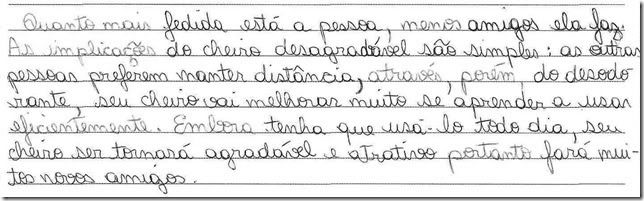 Quanto mais fedida está a pessoa, menos amigos ela faz.
As implicações do cheiro desagradável são simples: as outras
pessoas preferem manter distância, através, porém, do desodo
rante, seu cheiro vai melhorar muito se aprender a usar
eficientemente. Embora tenha que usá-lo todo dia, seu
cheiro ser tornará agradável e atrativo portanto fará mui-
tos novos amigos.